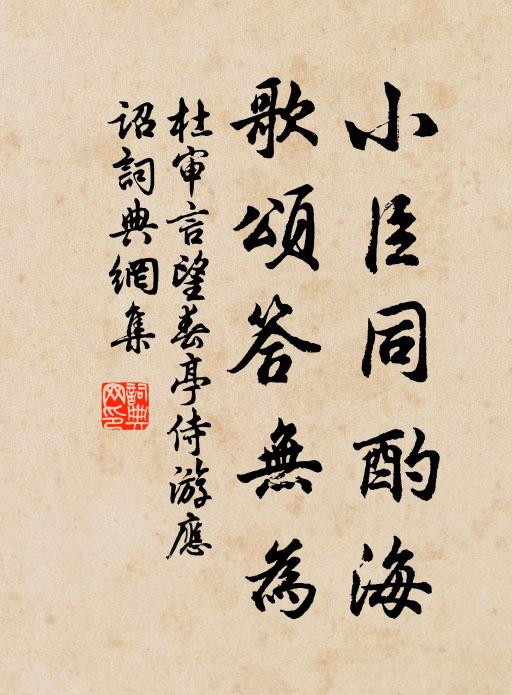 小臣同酌海
歌頌答無為
杜審言望春亭侍游應
詔詞典網集
詞典網印